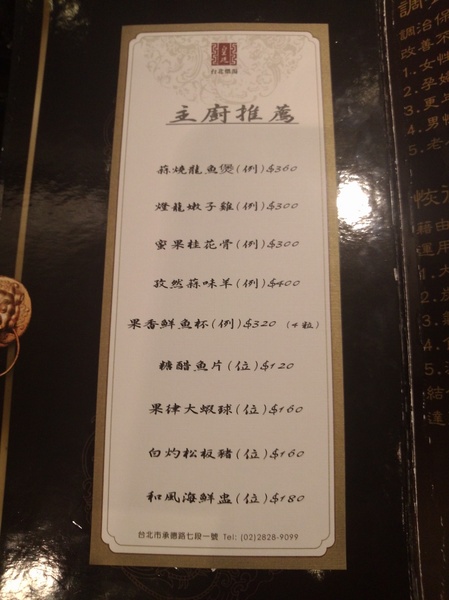 主廚推薦
蒜燒龍魚煲(例)$360
燈籠嫩子雞(例)$300
蜜果桂花骨(例)$300
孜然蒜味羊(例)$400
果香鮮魚杯(例)$320 (4粒)
糖醋魚片(位)$120
果律大蝦球(位)$160
白灼松板豬(位)$160
和風海鮮盅(位)$180
台北市承德路七段一號 Tel: (02)2828-9099
調治保
改善不
1.女性
2.孕
3.更
4.男性
5.老
藉由
運用
1.大
2.
3.
4.
5.
結
達